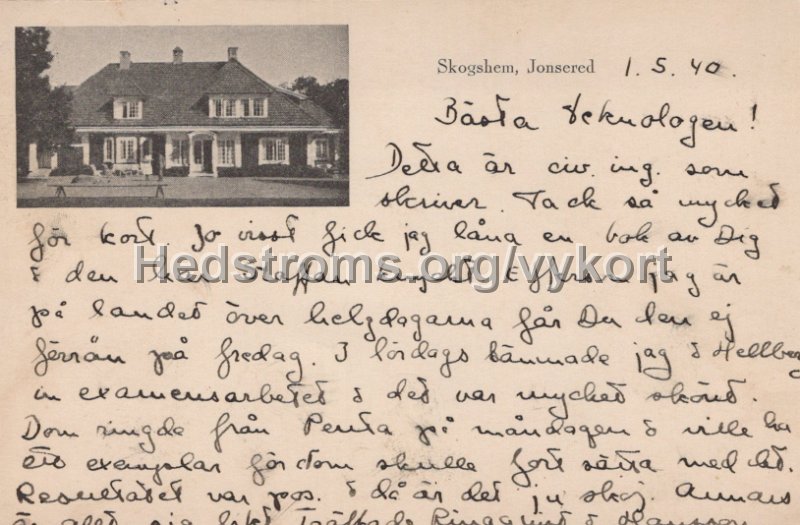 Skogshem, Jonsered 1.5.40.
Bästa teknologen!
Detta är civ. ing. som
skriver. Tack så mycket
för kort. Jo visst fick jag låna en bok av Dig
Hedstroms.org/vykort
& den har Staffan Eftersom jag är
på landet över helgdagarna får Du den ej
förrän på fredag. I lördags lämnade jag & Hellberg
in examensarbetet & det var mycket skönt.
Dom ringde från Penta på måndagen & ville ha
ett exemplar för dom skulle fortsätta med det.
Resultatet var pos. & då är det ju skoj. Annars
är allt sig likt. Träffade Ringqvist & Hansson